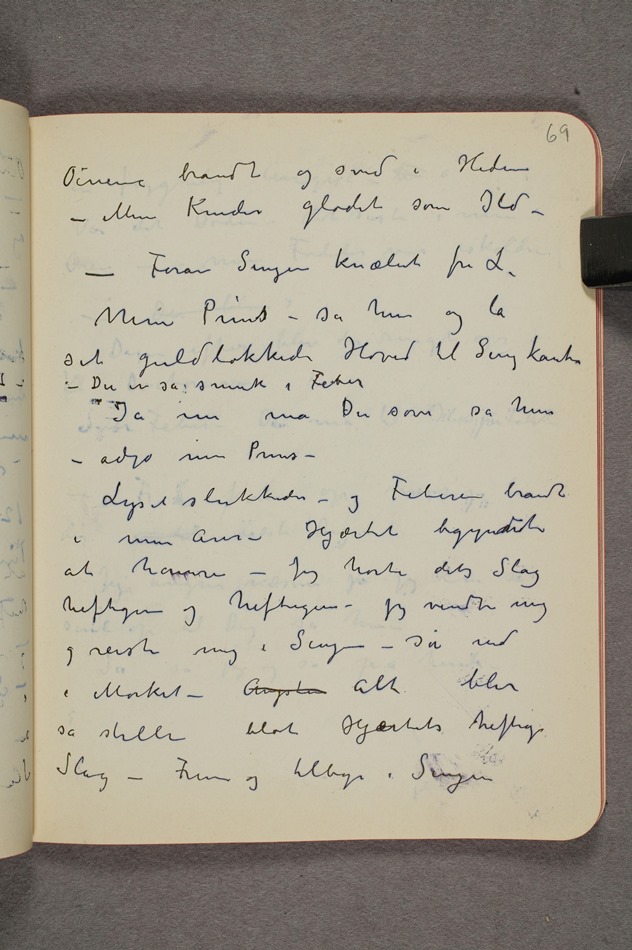 69
Öinene brandt og sved i Heden
– Mine Kinder glødet som Ild –
— Foran Sengen knælet frk L.
Min Prins – sa hun og la
sit guldlokkede Hoved til Sengkanten
– Du er så smuk i Feber
Ja nu må Du sove sa hun
– adjø min Prins –
Lyset slukkedes – og Feberen brandt
i mine Årer – Hjærtet begyndte
at hamre – Jeg hørte dets Slag
heftigere og heftigere – jeg vendte mig
og reiste mig i Sengen – så ud
i Mørket – Angsten Alt blev
så stille blot Hjærtets heftige
Slag – Frem og tilbage i Sengen